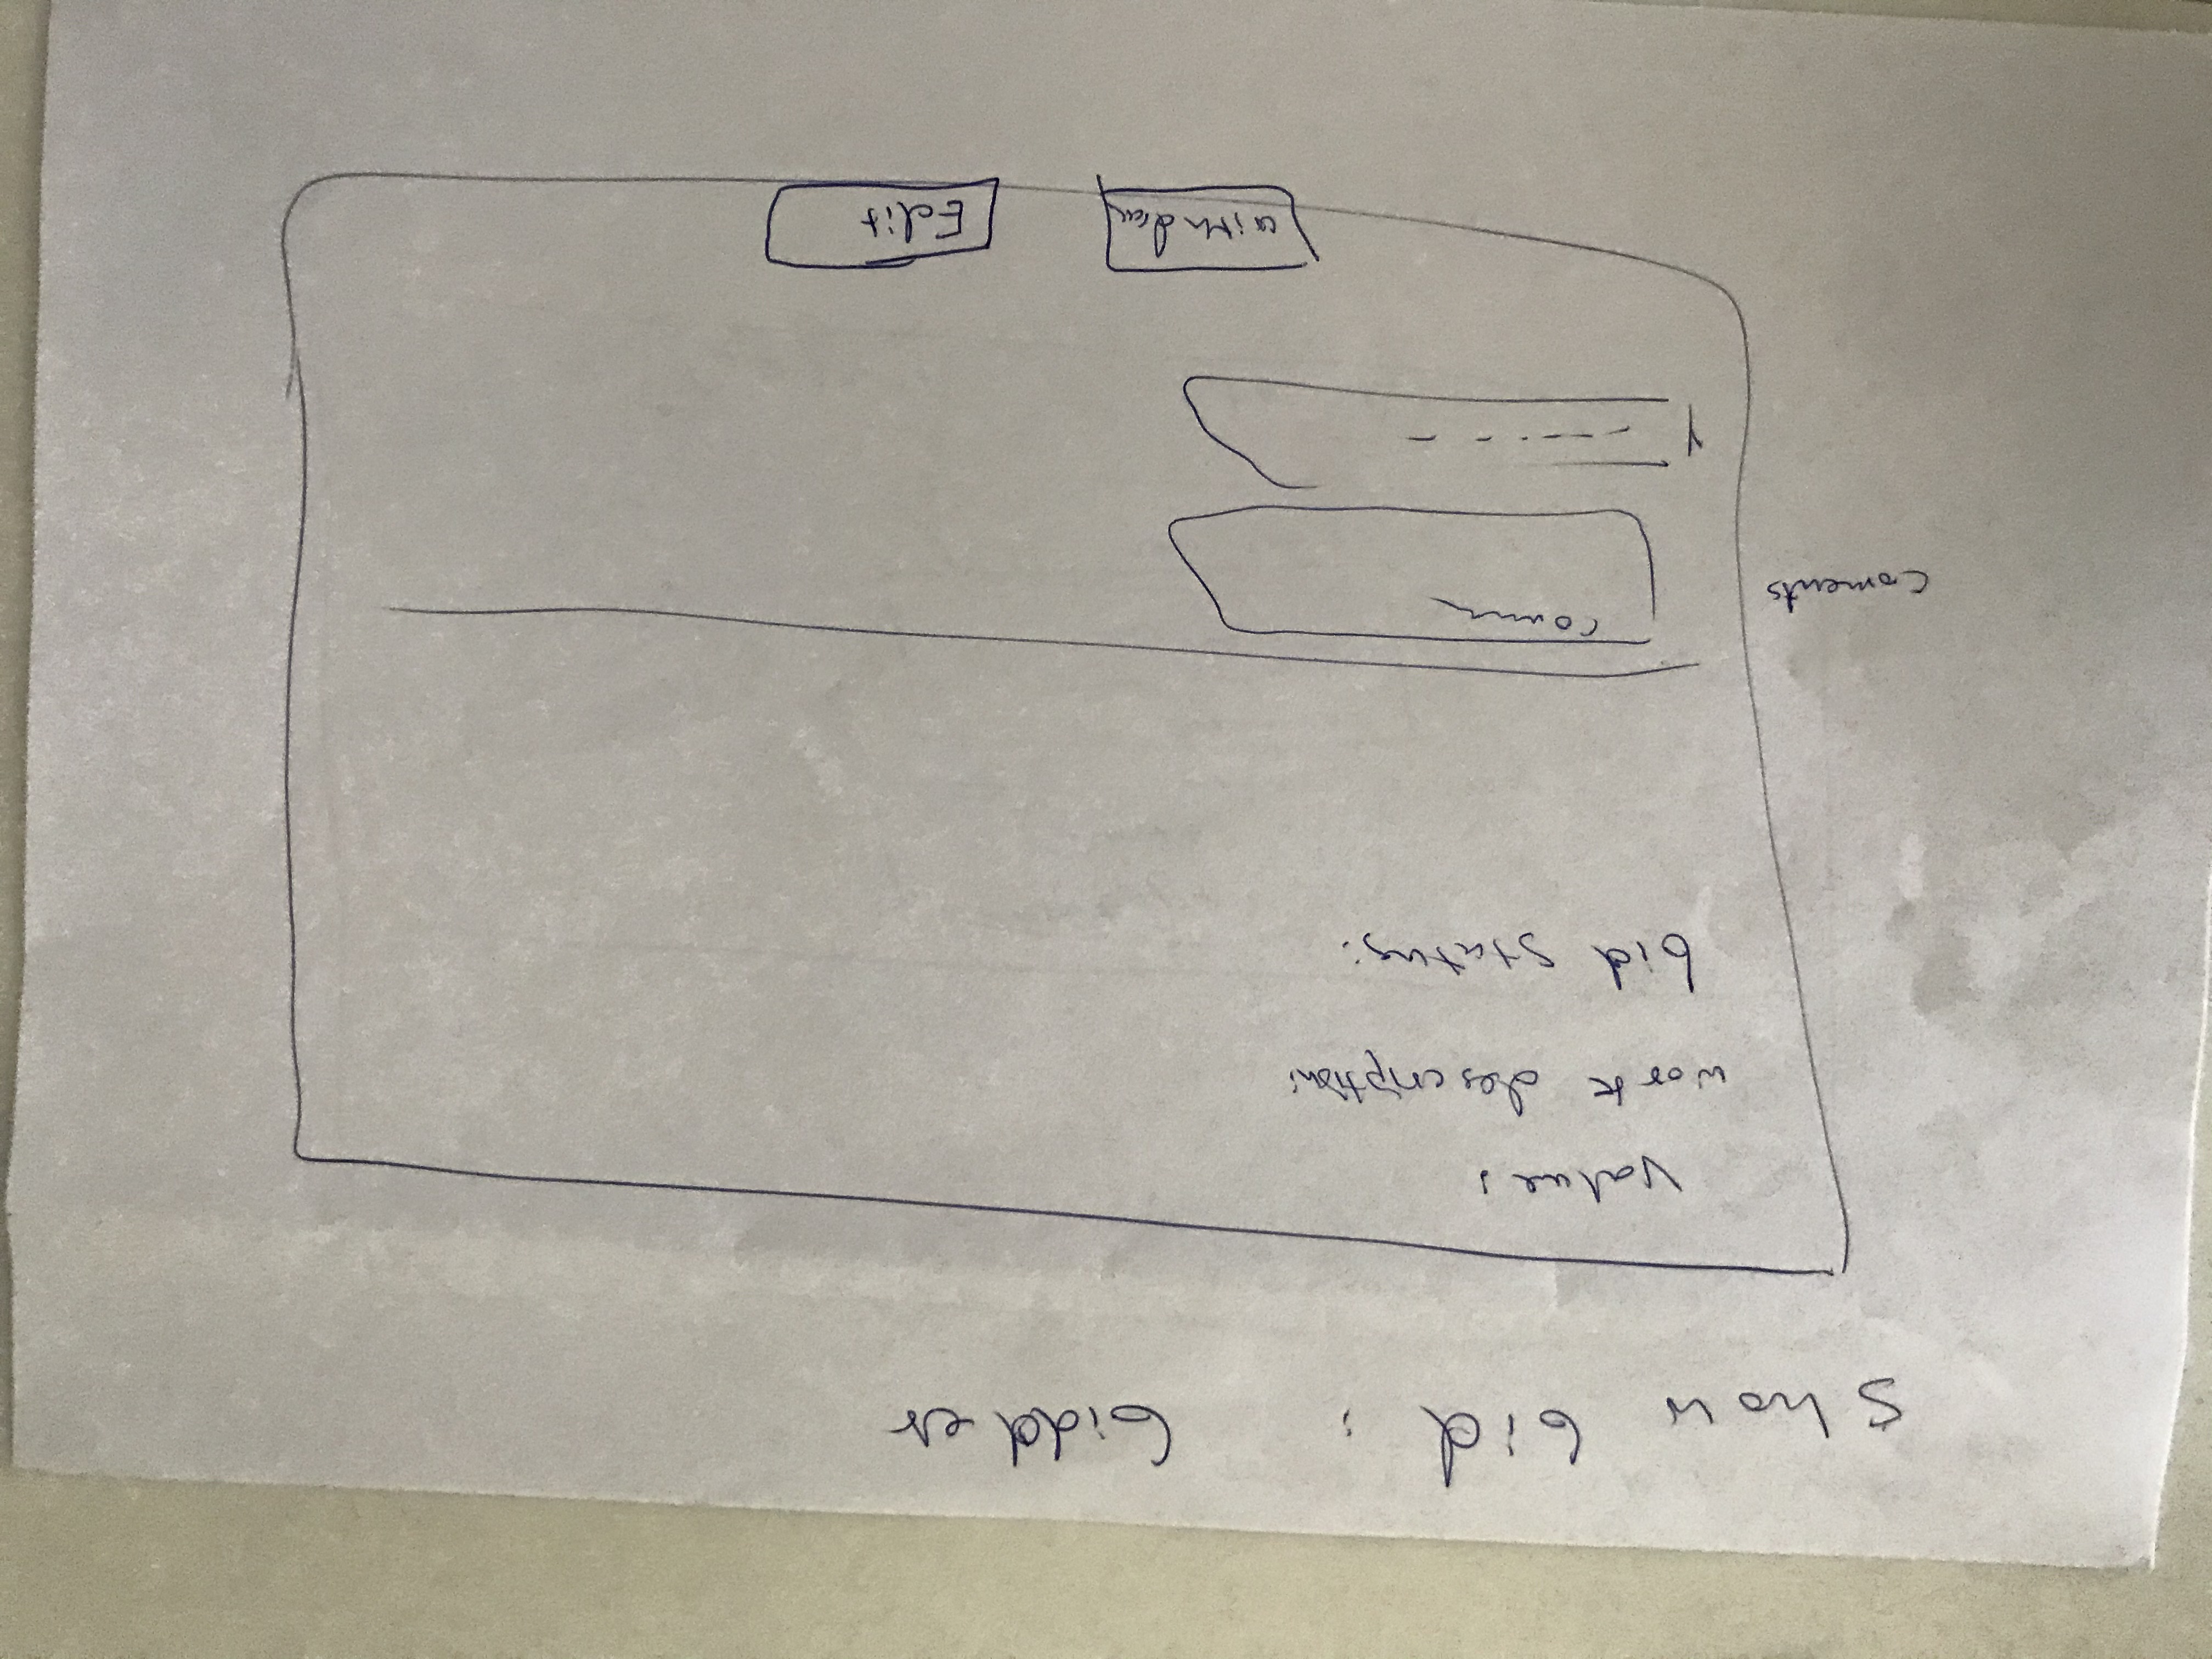 Show bid : bidder
Value :
work description:
bid status:
Coments
withdraw
Edit